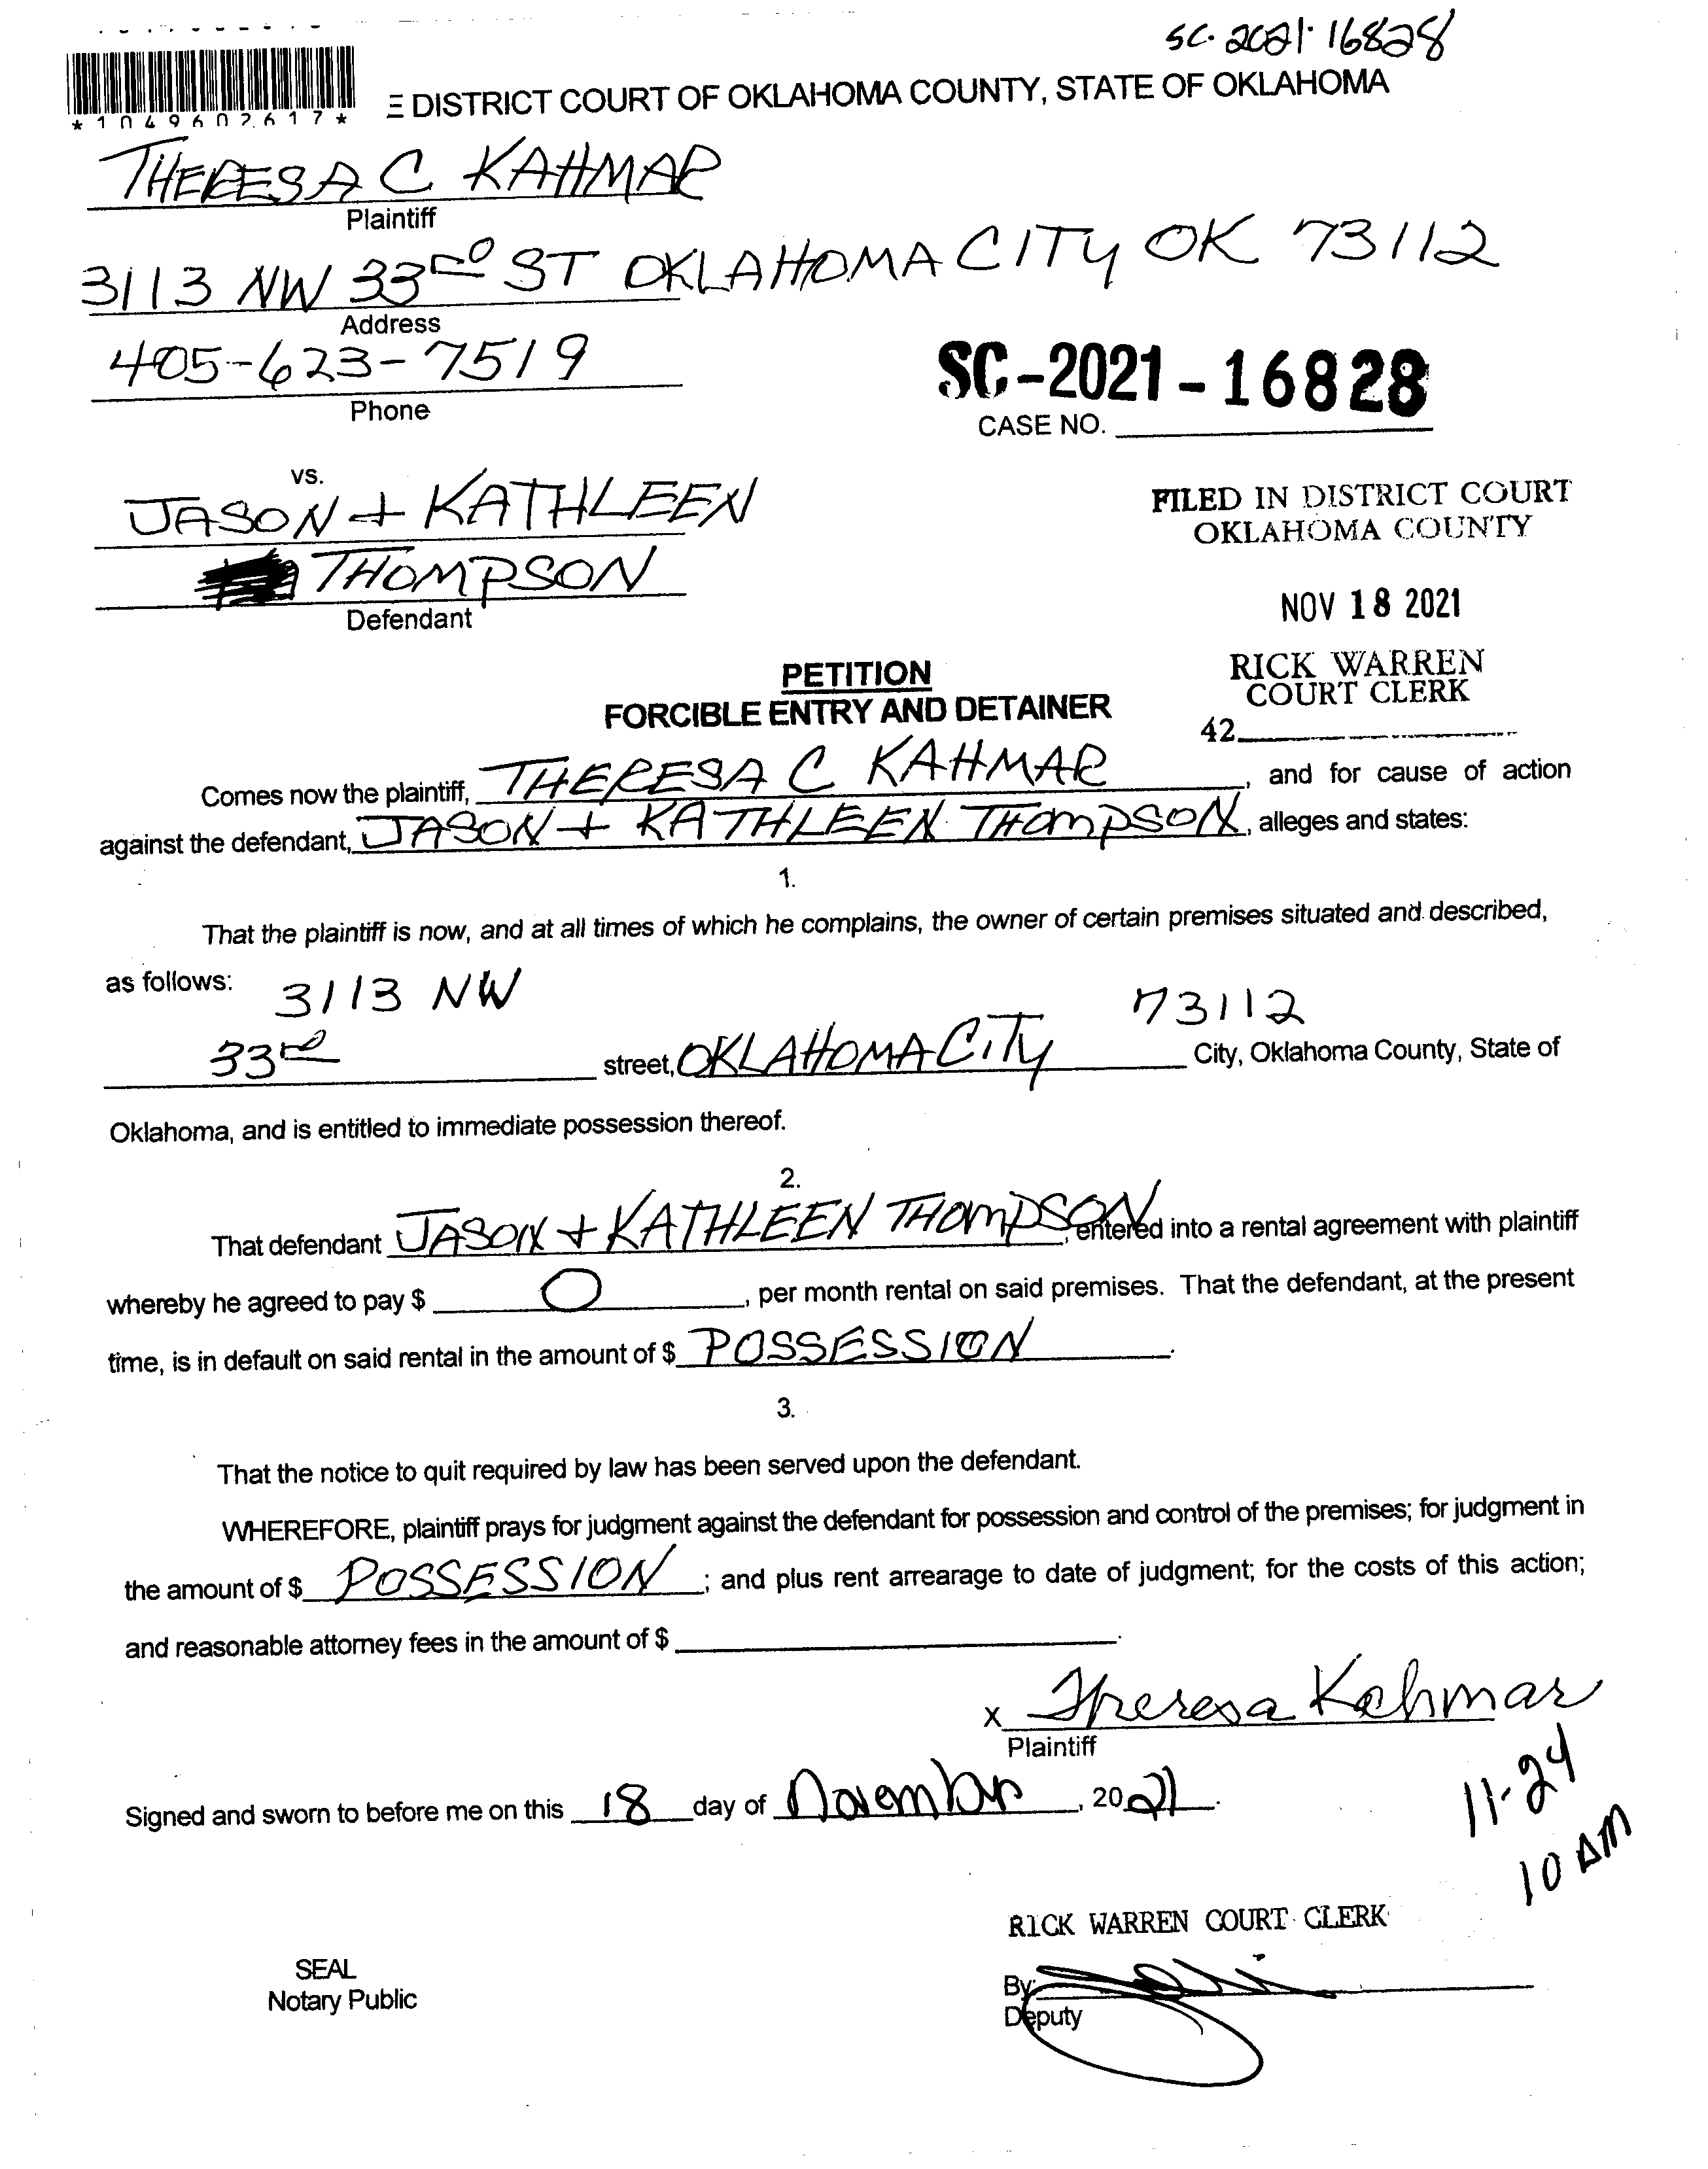 SC-2021-16828
E DISTRICT COURT OF OKLAHOMA COUNTY, STATE OF OKLAHOMA
*1049602617*
THERESA C KAHMAR
Plaintiff
3113 NW 33RD ST OKLAHOMA CITY OK 73112
Address
405-623-7519
Phone
SC-2021-16828
CASE NO.
vs.
JASON + KATHLEEN
THOMPSON
Defendant
FILED IN DISTRICT COURT
OKLAHOMA COUNTY
NOV 18 2021
RICK WARREN
COURT CLERK
42
PETITION
FORCIBLE ENTRY AND DETAINER
Comes now the plaintiff, THERESA C KAHMAR, and for cause of action
against the defendant, JASON + KATHLEEN THOMPSON, alleges and states:
1.
That the plaintiff is now, and at all times of which he complains, the owner of certain premises situated and described,
as follows: 3113 NW 73112
33RD street, OKLAHOMA CITY City, Oklahoma County, State of
Oklahoma, and is entitled to immediate possession thereof.
2.
That defendant JASON + KATHLEEN THOMPSON, entered into a rental agreement with plaintiff
whereby he agreed to pay $ 0, per month rental on said premises. That the defendant, at the present
time, is in default on said rental in the amount of $ POSSESSION.
3.
That the notice to quit required by law has been served upon the defendant.
WHEREFORE, plaintiff prays for judgment against the defendant for possession and control of the premises; for judgment in
the amount of $ POSSESSION; and plus rent arrearage to date of judgment; for the costs of this action;
and reasonable attorney fees in the amount of $
X Theresa Kahmar
Plaintiff
Signed and sworn to before me on this 18 day of November, 2021.
11-24
10 AM
RICK WARREN COURT CLERK
SEAL
Notary Public
By:
Deputy